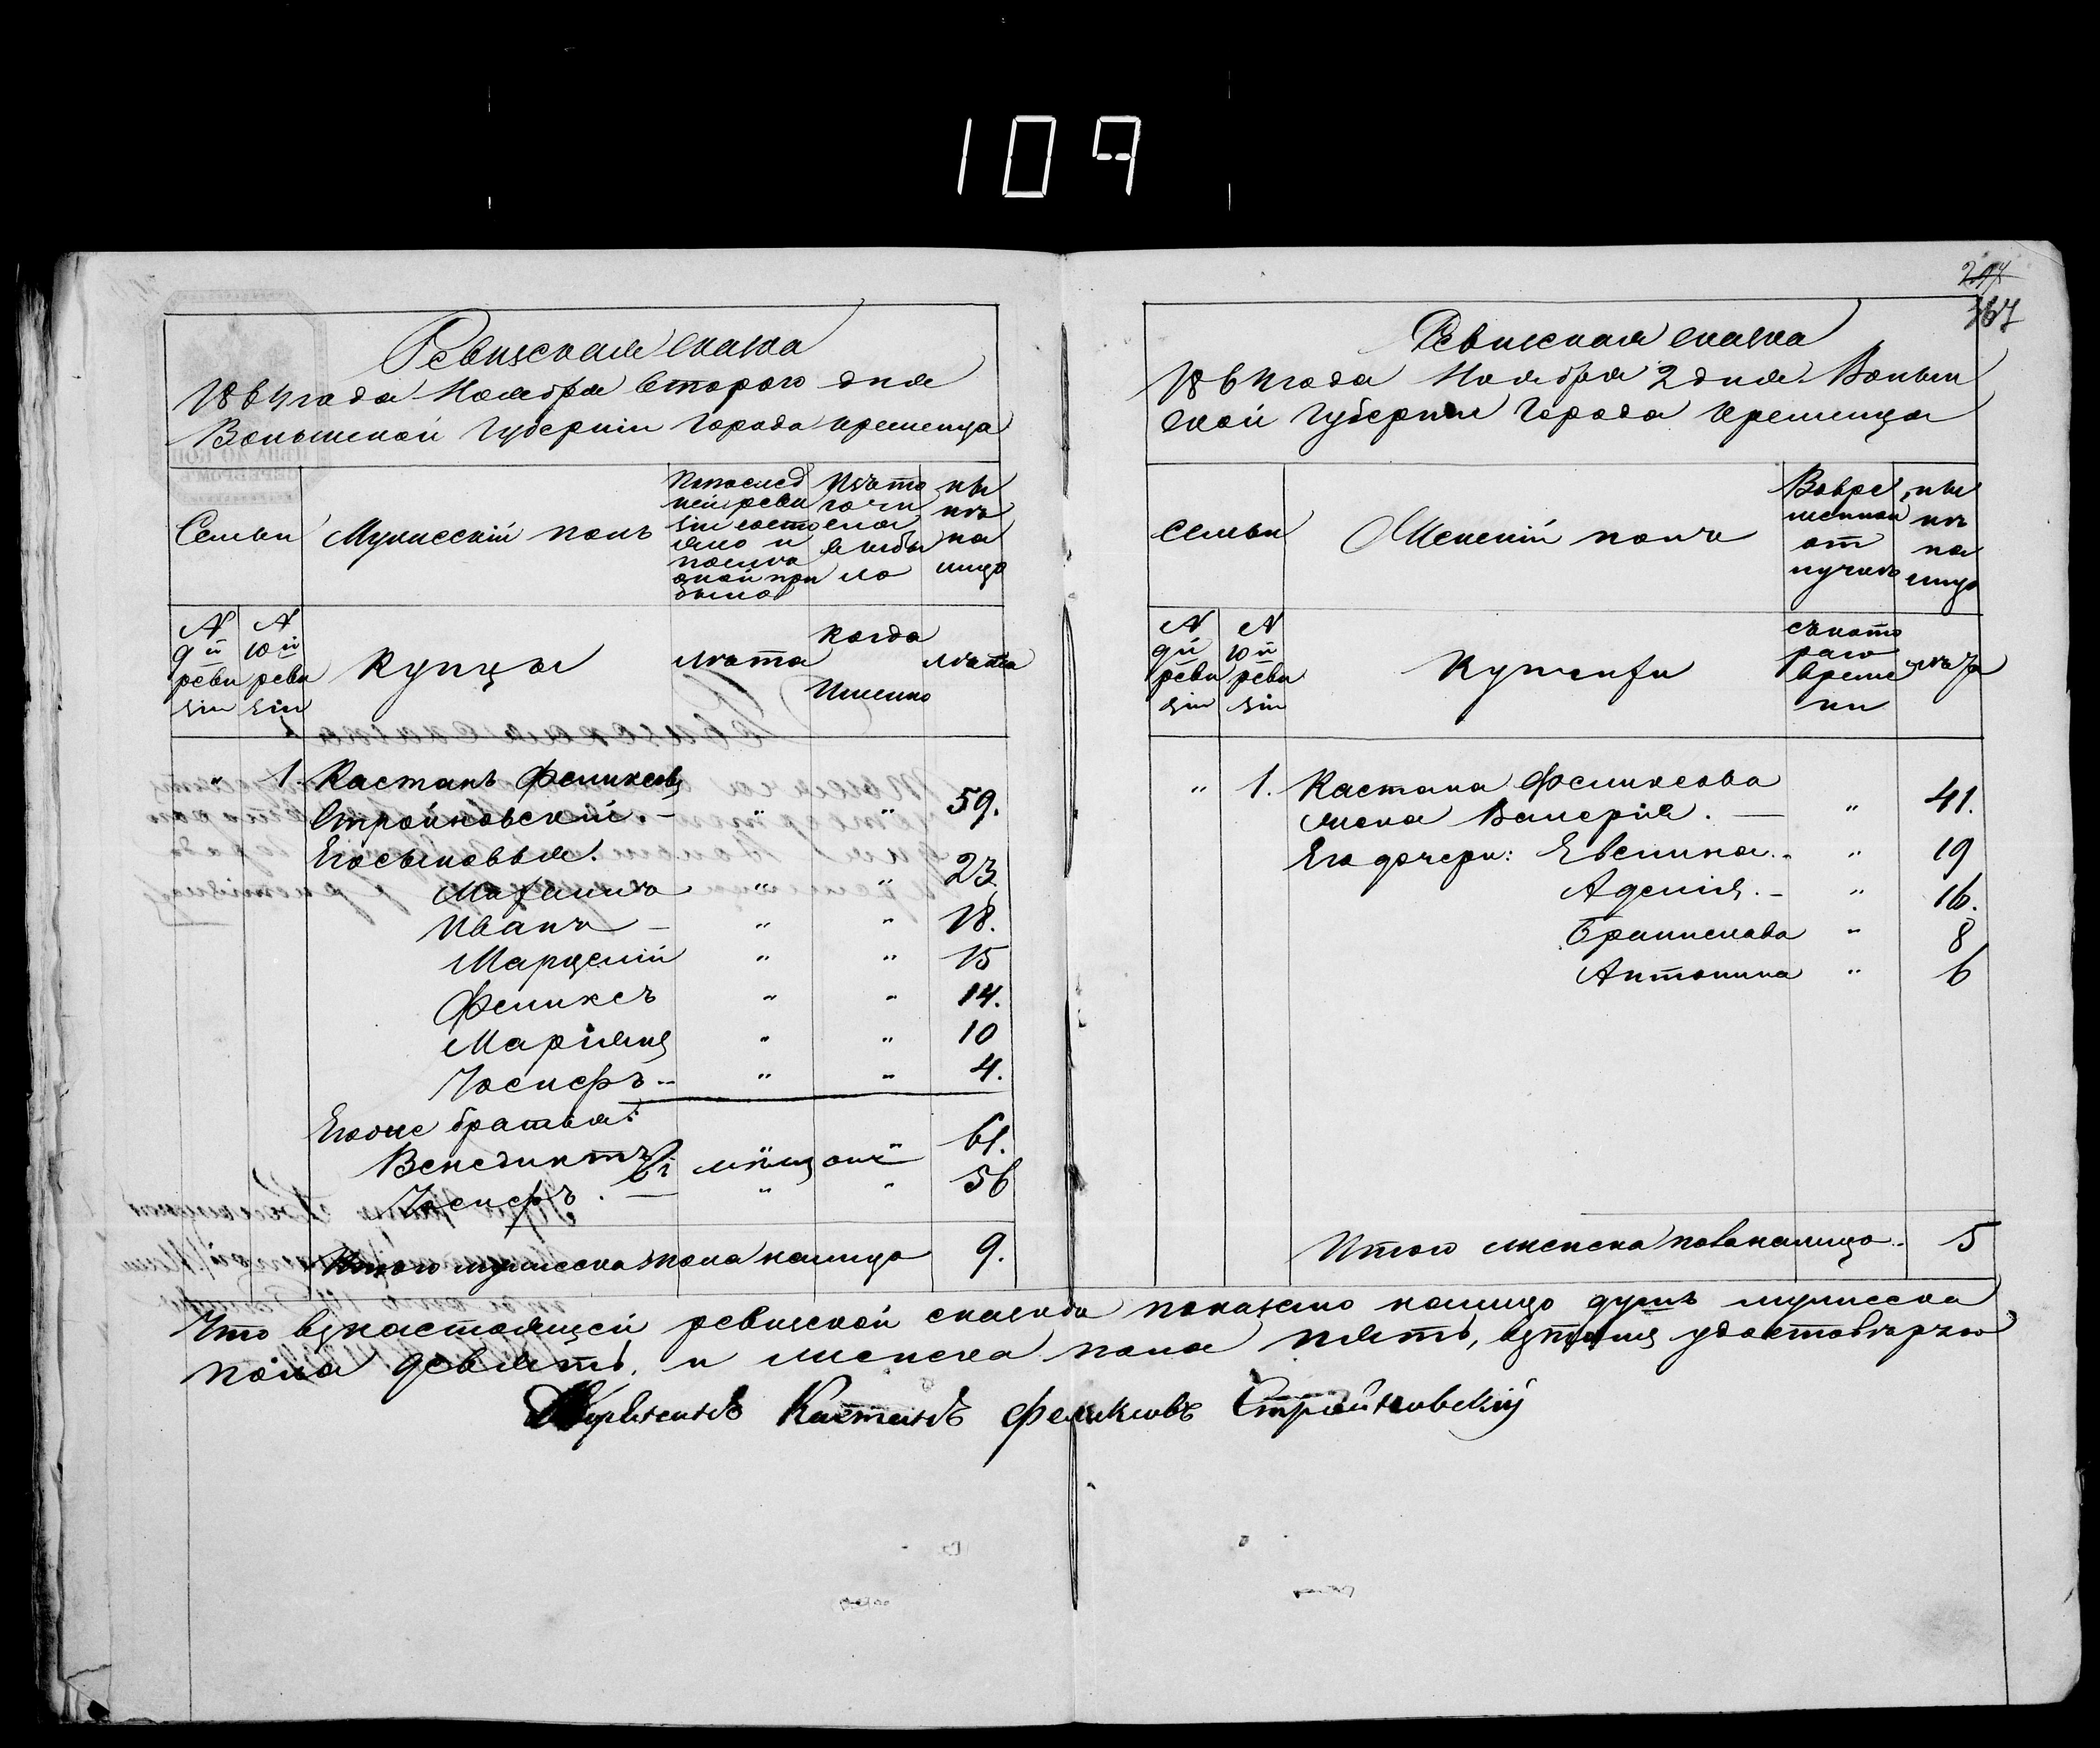 109
Ревизская сказка
1864 года Ноября второго дня
Волынской Губерніи Города Кременца
Семьи
Мужескій полъ
По послед
ней реви
зіи состо
яло и
после
оной при
было
Изъ то
го чи
сла
выбы
ло
ны
нѣ
на
лицо
№
9й
реви
зіи
№
10й
реви
зіи
Купцы
лѣта
когда
Именно
лѣта
" 1. Кастанъ Феликсовъ
Стройновскій. — " " 59.
Его сыновья.
" " 23
Иванъ — " " 18.
Марцелій " " 15
Феликсъ " " 14.
Маріянъ " " 10
Іосифъ " " 4.
Его же братья:
Венедиктъ 61.
Іосифъ. — " " 56
Итого мужеска пола налицо 9.
247
Ревизская сказка
1864 года Ноября 2 дня. Волын
ской Губерніи Города Кременца
Семьи
Женскій полъ
Во вре
менной
от
лучкѣ
ны
нѣ
на
лицо
№
9й
реви
зіи
№
10й
реви
зіи
Купчихи
съ кото
раго
време
ни
лѣта
" 1. Кастана Феликсова
жена Валерія. — " 41.
Его дочери: Евелина. " 19
Аделія. — " 16.
Бранислава " 8
Антонина " 6
Итого женска пола налицо. 5
Что въ настоящей ревизской сказкѣ показано налицо душъ мужеска
пола девять, и женска пола пять, въ томъ удостовѣряю
Кастанъ Феликсовъ Стройновскій